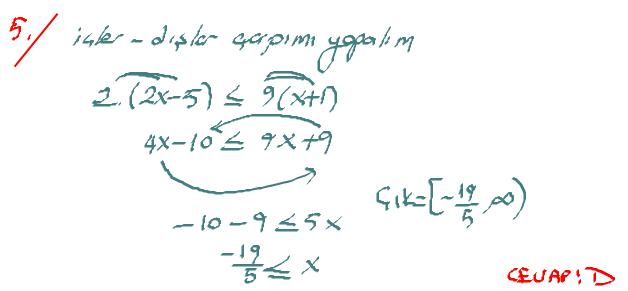 5./ içler - dışlar çarpımı yapalım
2.(2x-5) ≤ 9(x+1)
4x-10 ≤ 9x+9
-10-9 ≤ 5x
Ç.K=[-19/5,∞)
-19/5 ≤ x
CEVAP: D